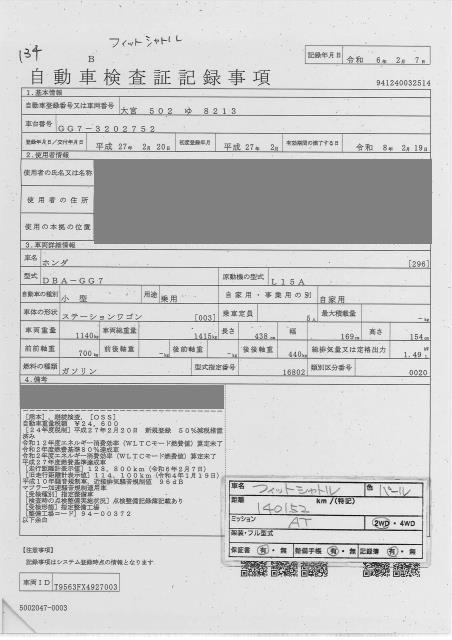 フィットシャトル
134
B
記録年月日 令和 6年 2月 7日
自動車検査証記録事項
941240032514
1.基本情報
自動車登録番号又は車両番号 大宮 502 ゆ 8213
車台番号 GG7-3202752
登録年月日/交付年月日 平成 27年 2月 20日 初度登録年月 平成 27年 2月 有効期間の満了する日 令和 8年 2月 19日
2.使用者情報
使用者の氏名又は名称
使用者の住所
使用の本拠の位置
3.車両詳細情報
車名 ホンダ [296]
型式 DBA-GG7 原動機の型式 L15A
自動車の種別 小型 用途 乗用 自家用・事業用の別 自家用
車体の形状 ステーションワゴン [003] 乗車定員 5人 最大積載量 -kg
車両重量 1140kg 車両総重量 1415kg 長さ 438cm 幅 169cm 高さ 154cm
前前軸重 700kg 前後軸重 -kg 後前軸重 -kg 後後軸重 440kg 総排気量又は定格出力 1.49
燃料の種類 ガソリン 型式指定番号 16802 類別区分番号 0020
4.備考
[熊本],継続検査,[OSS]
自動車重量税額 ¥24,600
[24年度税制]平成27年2月20日 新規登録 50%減税措置
済み
令和12年度エネルギー消費効率(WLTCモード燃費値)算定未了
令和2年度燃費基準80%達成車
令和2年度エネルギー消費効率(WLTCモード燃費値)算定未了
平成27年度燃費基準達成車
[走行距離計表示値]128,800km(令和6年2月7日)
[旧走行距離計表示値]114,100km(令和4年1月19日)
平成10年騒音規制車、近接排気騒音規制値 96dB
マフラー加速騒音規制適用車
[受検種別]指定整備車
[検査時の点検整備実施状況]点検整備記録簿記載あり
[受検形態]指定整備工場
[整備工場コード]94-00372
以下余白
車名 フィットシャトル 色 パール
距離 140152 km/(特記)
ミッション AT 2WD・4WD
架装・フル型式
保証書 有・無 整備手帳 有・無 記録簿 有・無
【注意事項】
記録事項はシステム登録時点の情報となります
車両ID T9563FX4927003
5002047-0003